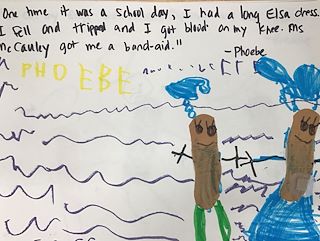 One time it was a school day, I had a long Elsa dress.
I fell and tripped and I got blood on my knee. Ms
McCauley got me a band-aid."
- Phoebe
PHOEBE